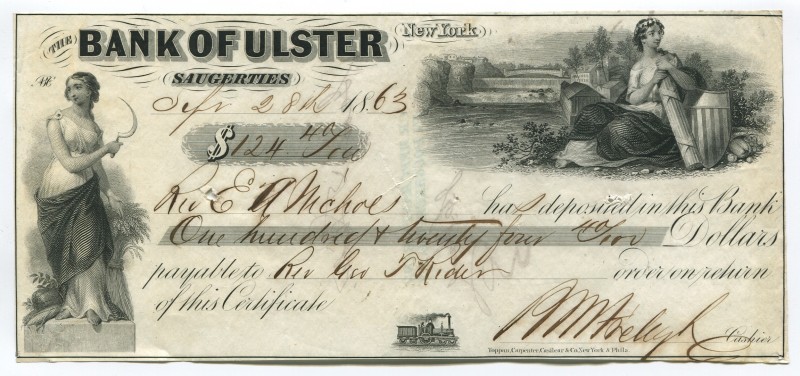 THE BANK OF ULSTER New York
SAUGERTIES
Sept 28th 1863
$124 40/100
Rev E A Nichols has deposited in this Bank
One hundred & twenty four 40/100 Dollars
payable to Rev Geo T Rider order on return
of this Certificate
Cashier
Toppan, Carpenter, Casilear & Co. New York & Phila.